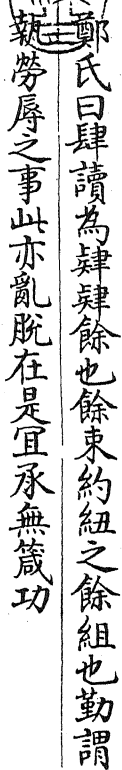 鄭氏曰肆讀為肄肄餘也餘束約紐之餘組也勤謂
執勞辱之事此亦亂脫在是冝承無箴功